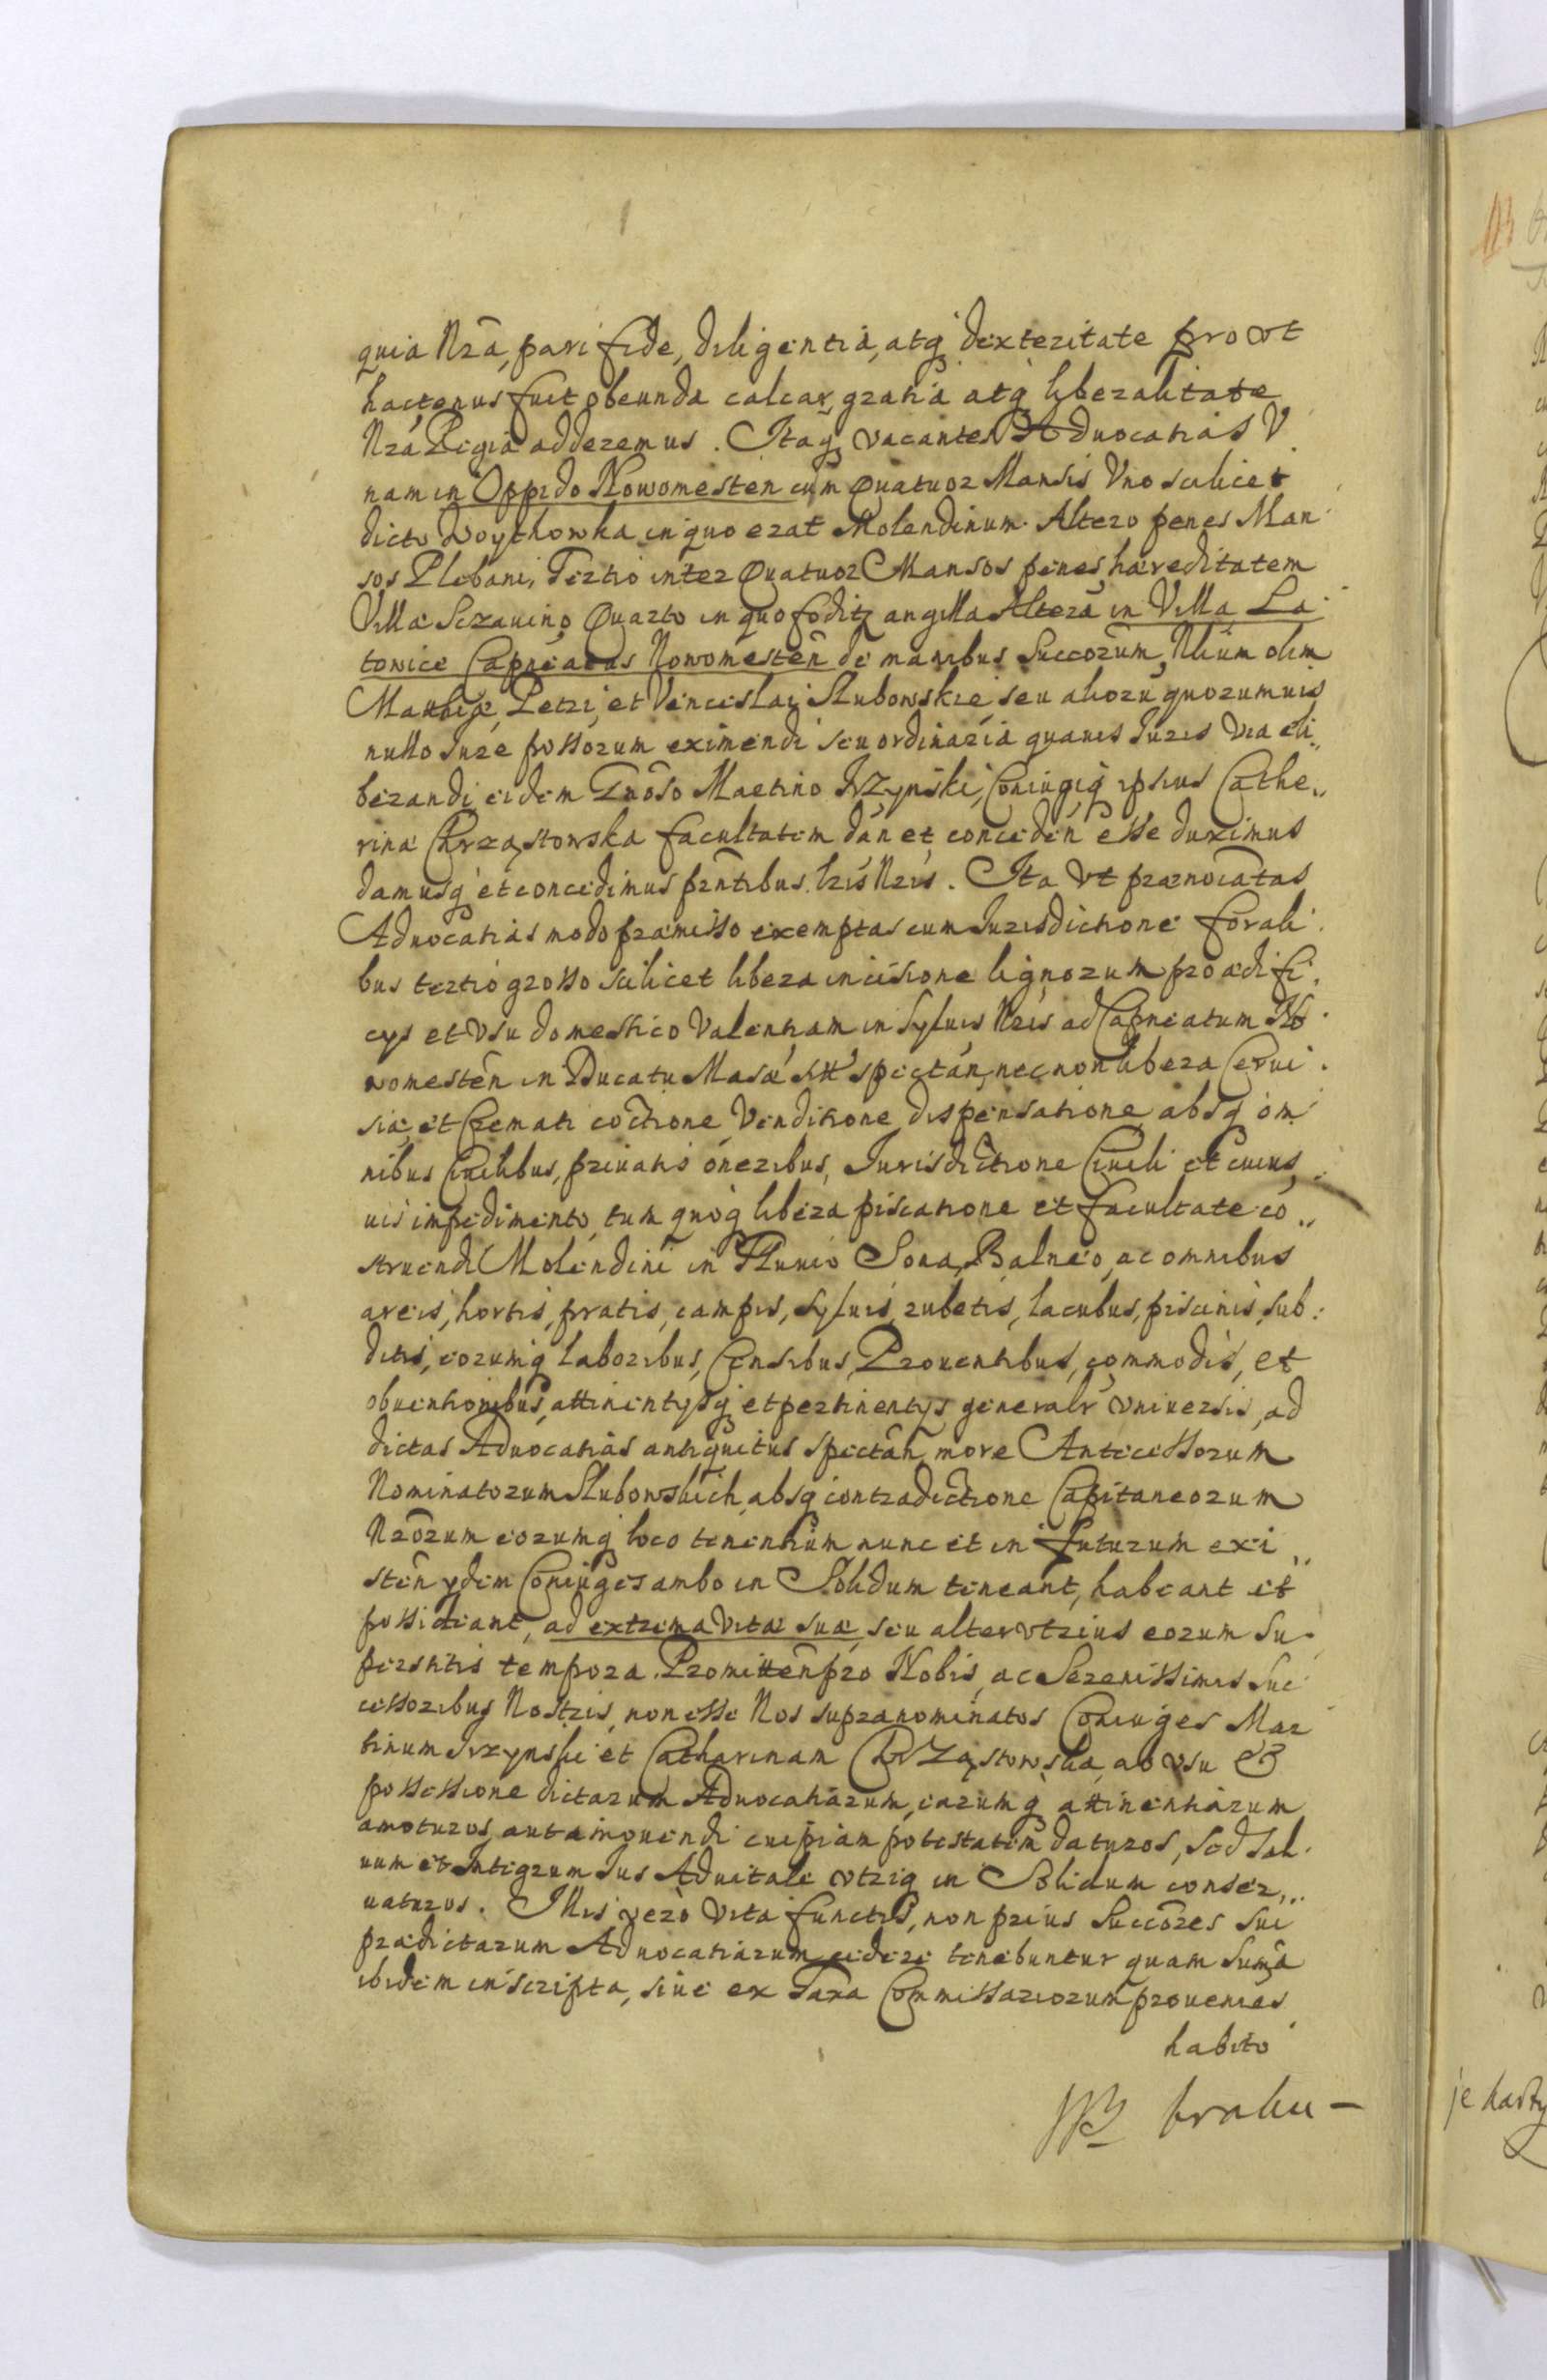 quia Nrã, pari fide, diligentiâ, atq dexteritate prout
hactenus fuit obeunda calcar, gratiâ atq liberalitate
Nrâ Regiâ adderemus. Itaq vacantes Advocatias V
nam in Oppido Nowomesten cum Quatuor Mansis Vno scilicet
dicto Woythowka in quo erat Molendinum. Altero penes Man
sos Plebani, Tertio inter Quatuor Mansos penes hæreditatem
Villæ Sczavino Quarto in quo foditr argilla Alterã in Villa La
towice Capneatus Nowomesten de manibus Succorũm, Nlium olim
Mathiæ, Petri, et Venceslai Slubowskie seu alioru quorumuis
nullo Jure possorum eximendi seu ordinariâ quauis Juris via eli„
berandi eidem Gnoso Martino Irzynski, Coniugiq ipsius Cathe„
rinæ Chrząstowska facultatem dan et conceden esse duximus
damusq et concedimus prntibus lris Nris. Ita vt prænotatas
Aduocatias modo præmisso exemptas cum Jurisdictione forali
bus tertio grosso scilicet libera incisione lignorum pro ædifi
cys et vsu domestico Valentiam in Syluis Nris ad Capneatum No
womesten in Ducatu Masæ sitt spectan, necnon libera Cerui
siæ, et Cremati coctione, Venditione, dispensatione, absq om
nibus Ciuilibus, priuatis oneribus, Jurisdictione Ciuili et cuius
uis impedimento, tum quoq libera piscatione et facultate co„
struendi Molendini in Fluuio Sona, Balneo, ac omnibus
areis, hortis, pratis, campis, syluis, rubetis, lacubus, piscinis, sub:
ditis, eorumq laboribus, Censibus, Prouentibus, commodis, et
obuentionibus, attinentysq et pertinentys generalr vniuersis, ad
dictas Aduocatias antiquitus spectan, more Antecessorum
Nominatorum Slubowskich, absq contradictione Capitaneorum
Nrorum eorumq loco tenentium nunc et in futurum exi„
sten ydem Coniuges ambo in Solidum teneant, habeant et
possideant, ad extrema vitæ suæ, seu alterutrius eorum su
perstitis tempora. Promitten pro Nobis, ac Serenissimis Suc
cessoribus Nostris, non esse Nos supranominatos Coniuges Mar
tinum Irzynski et Catharinam Chrząstowska, ab vsu &
possessione dictarum Aduocatiarum, earumq attinentiarum
amoturos, aut amouendi cuipiam potestatem daturos, sed sal
uum et Integrum Jus Aduitale vtriq in Solidum conser„
uaturos. Illis vero vita functis, non prius Succores sui
prædictarum Aduocatiarum cedere tenebuntur quam sumã
ibidem inscripta, siue ex Taxa Commissariorum proueniens
habito